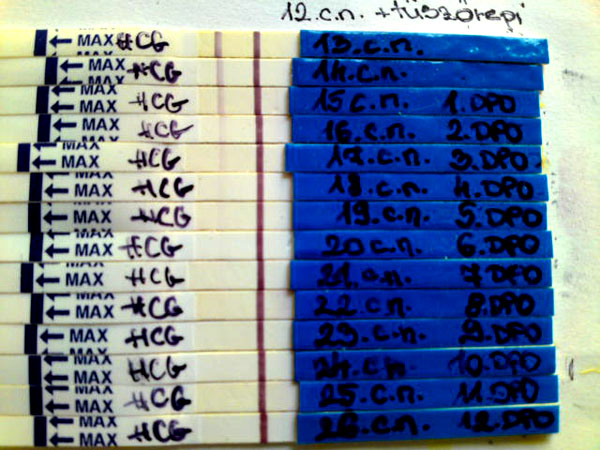 12.c.n. +tüszőrepi
MAX HCG 13.c.n.
MAX HCG 14.c.n.
MAX HCG 15c.n. 1.DPO
MAX HCG 16.c.n. 2.DPO
MAX HCG 17.c.n. 3.DPO
MAX HCG 18.c.n. 4.DPO
MAX HCG 19.c.n. 5.DPO
MAX HCG 20c.n. 6.DPO
MAX HCG 21.c.n. 7.DPO
MAX HCG 22.c.n. 8.DPO
MAX HCG 23.c.n. 9.DPO
MAX HCG 24.c.n. 10.DPO
MAX HCG 25.c.n. 11.DPO
MAX HCG 26.c.n. 12.DPO